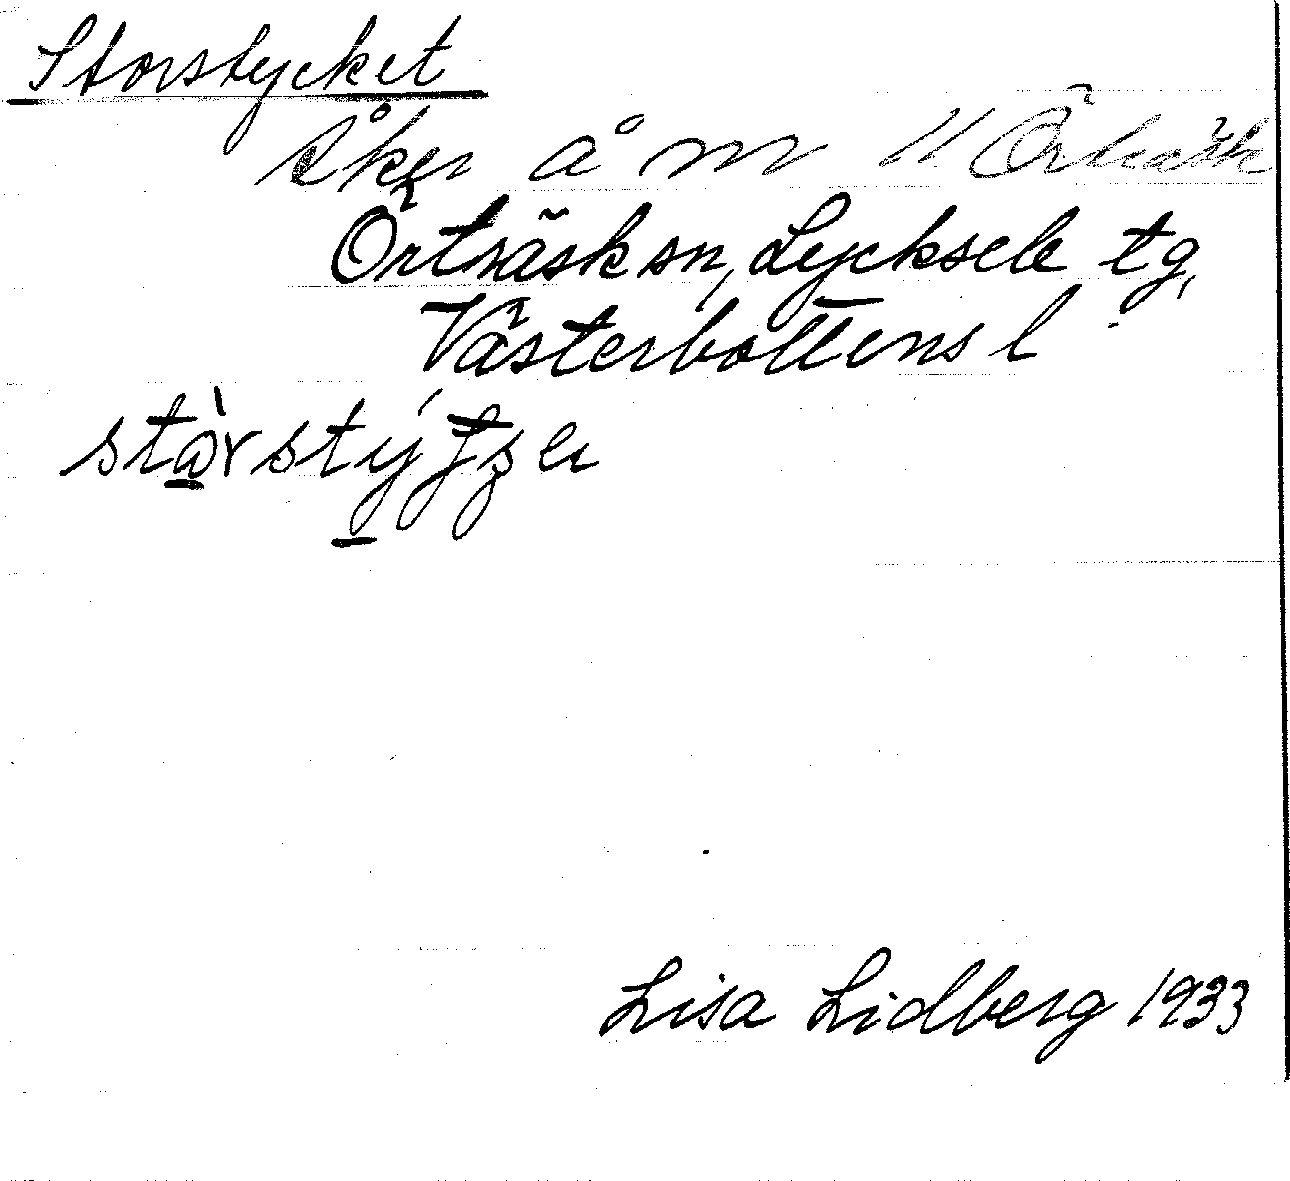 Storstycket
åker å m 11 Örträsk
Örträsk sn, Lycksele tg,
Västerbottens l
Lisa Lidberg 1933